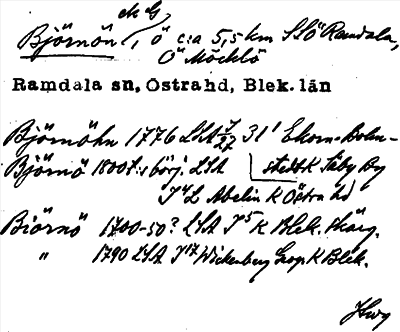 ek G
Björnön, ö c:a 5,5 km SSÖ Ramdala,
Ö Möcklö
Ramdala sn, Östra hd, Blek. län
Björnöhn 1776 LSA 7/27 31' Ekorn-Bolm-
Björnö 1800t:s börj. LSA stettK Säby By
J4L Abelin K Östra hd
Biörnö 1700-50? LSA J5 K Blek. skärg.
" 1790 LSA J17 Wickenberg Geogr K Blek.